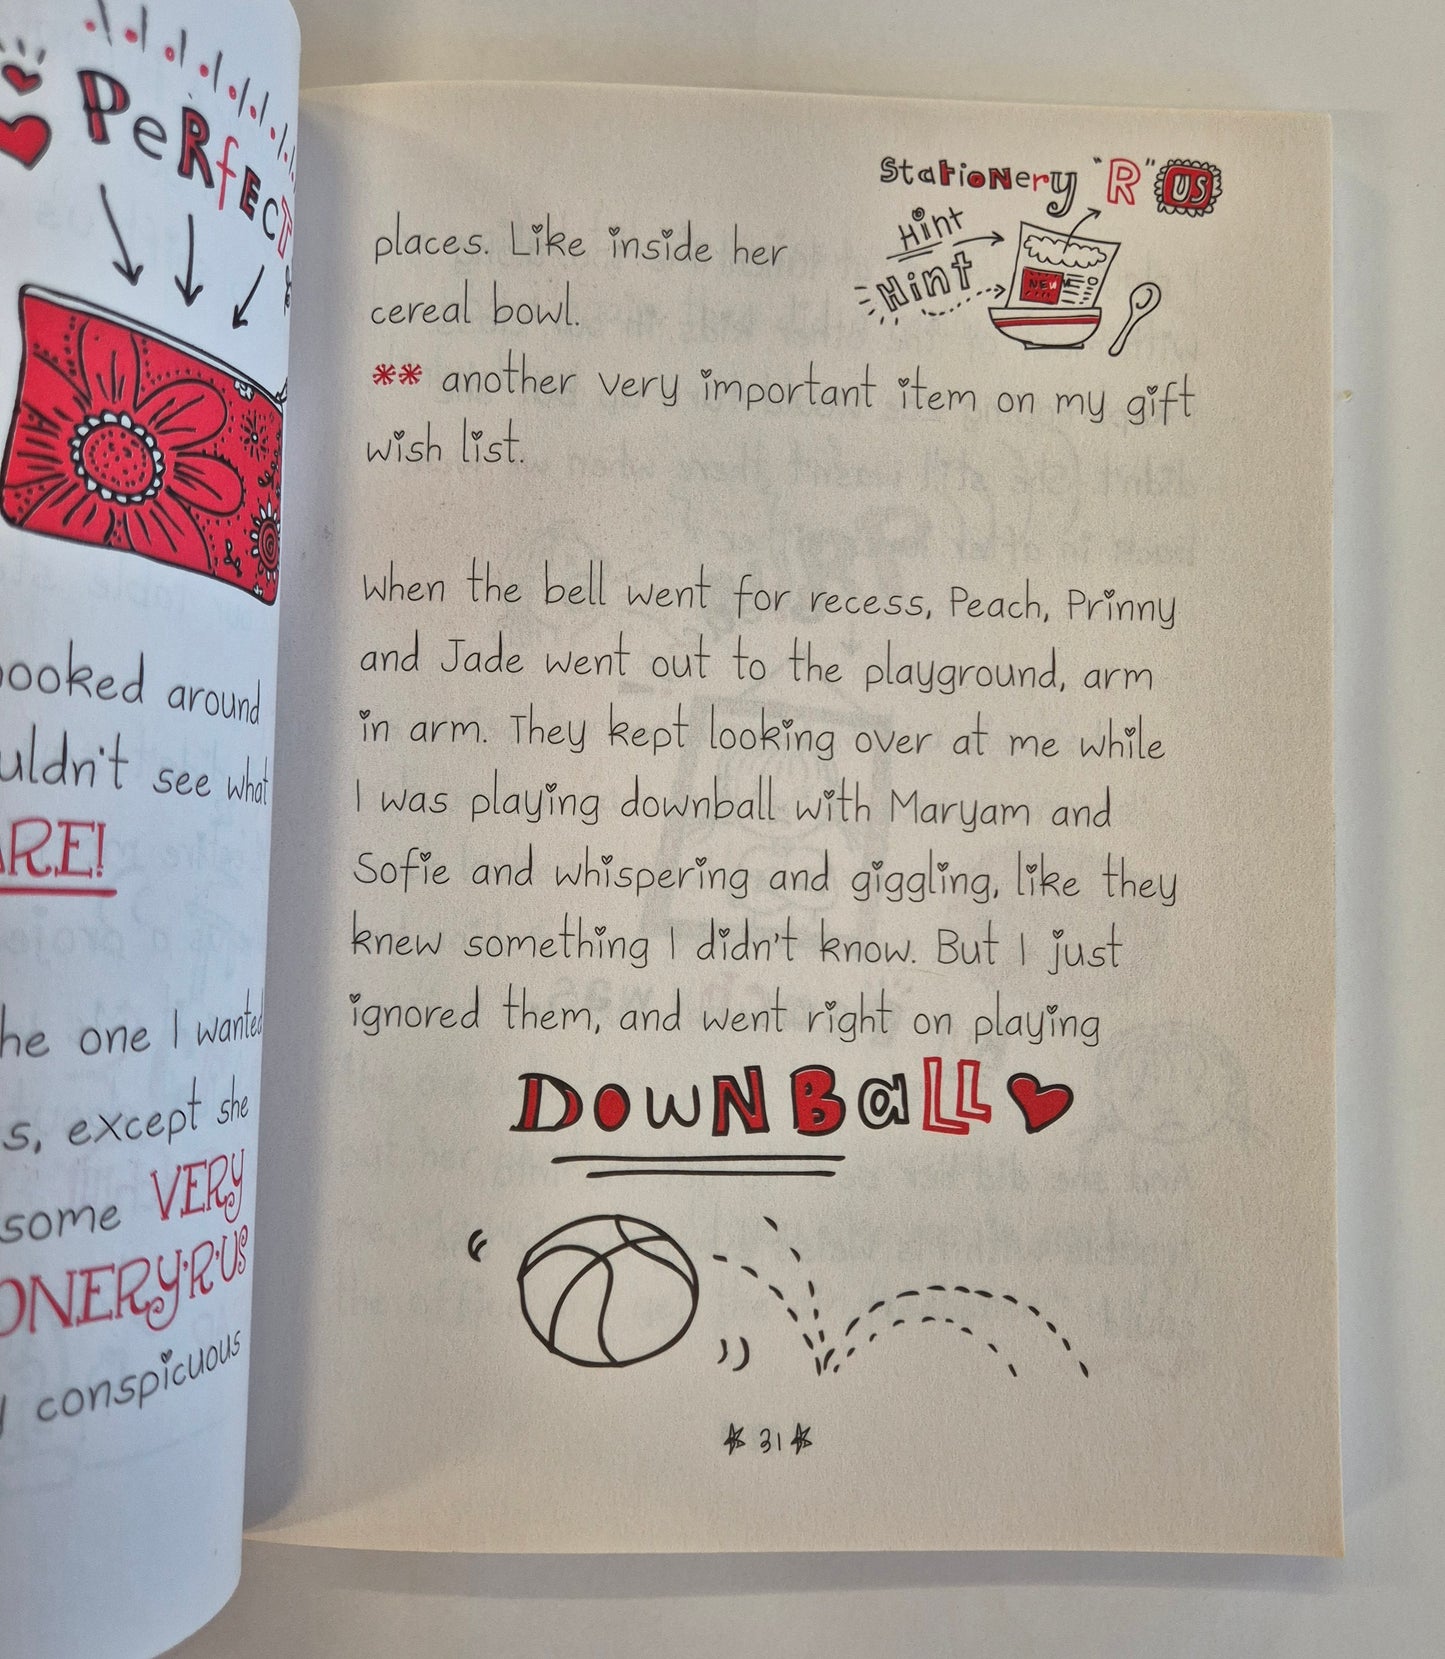 PeRfECT
ooked around
uldn't see what
ARE!
he one I wanted
s, except she
some VERY
ONERY·R·US
y conspicuous
Stationery "R" US
Hint
Hint
NEW
places. Like inside her
cereal bowl.
** another very important item on my gift
wish list.
When the bell went for recess, Peach, Prinny
and Jade went out to the playground, arm
in arm. They kept looking over at me while
I was playing downball with Maryam and
Sofie and whispering and giggling, like they
knew something I didn't know. But I just
ignored them, and went right on playing
DOWNBaLL
31